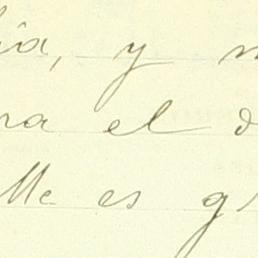 ia, y
ra el
lle es